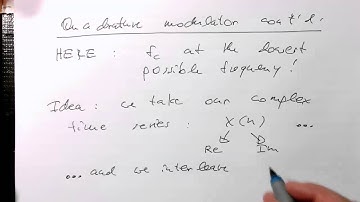 Quadrature modulator cont'd.
HERE : fc at the lowest
possible frequency!
Idea: we take our complex
time series : x(n) ...
Re Im
... and we interleave